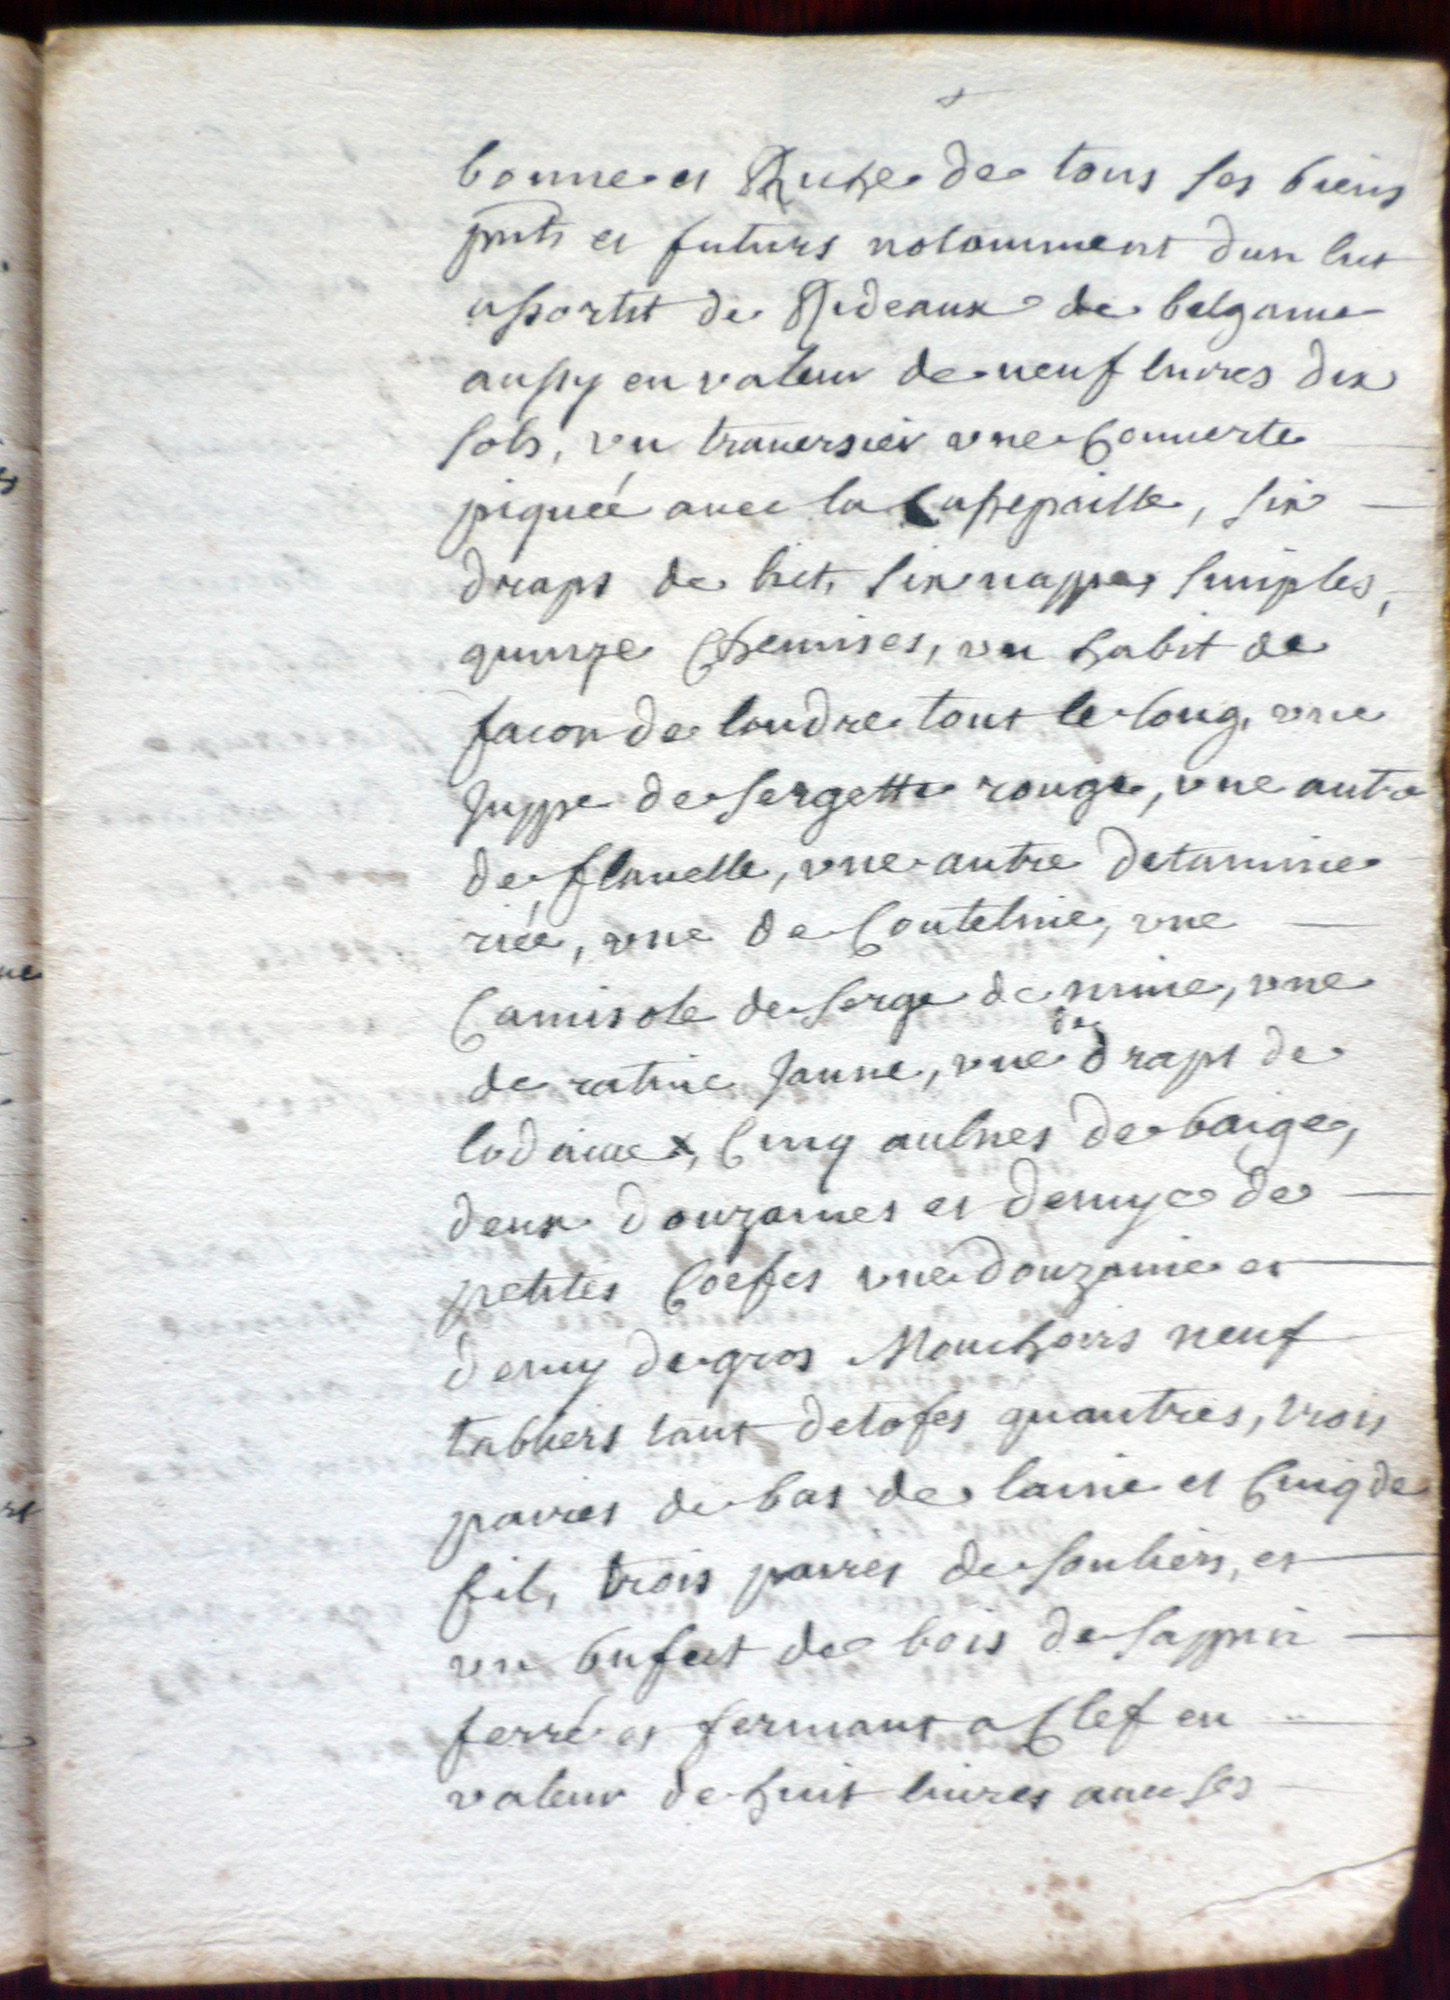 bonne et Riche de tous ses biens
pnts et futurs notamment dun lict
assortit de Rideaux de belgame
aussy en valeur de neuf livres dix
sols, vn trauersier vne Couuerte
piquée auec la Cassepaille, six
draps de lict, six nappes simples,
quinze Chemises, vn habit de
facon de londre tout le long, vne
Juppe de sergette rouge, vne autre
de flanelle, vne autre detamine
riée, vne de Couteline, vne
Camisole de serge de nime, vne
de ratine Jaune, vne de draps de
lodaiue, Cinq aulnes de baige,
deux douzaines et demye de
petites Coefes vne douzaine et
demy de gros Mouchoirs neuf
tabliers tant detofes quautres, trois
paires de bas de laine et Cinq de
fil, trois paires de souliers, et
vn bufect de bois de sappin
ferré et fermant a Clef en
valeur de huit liures auec ses